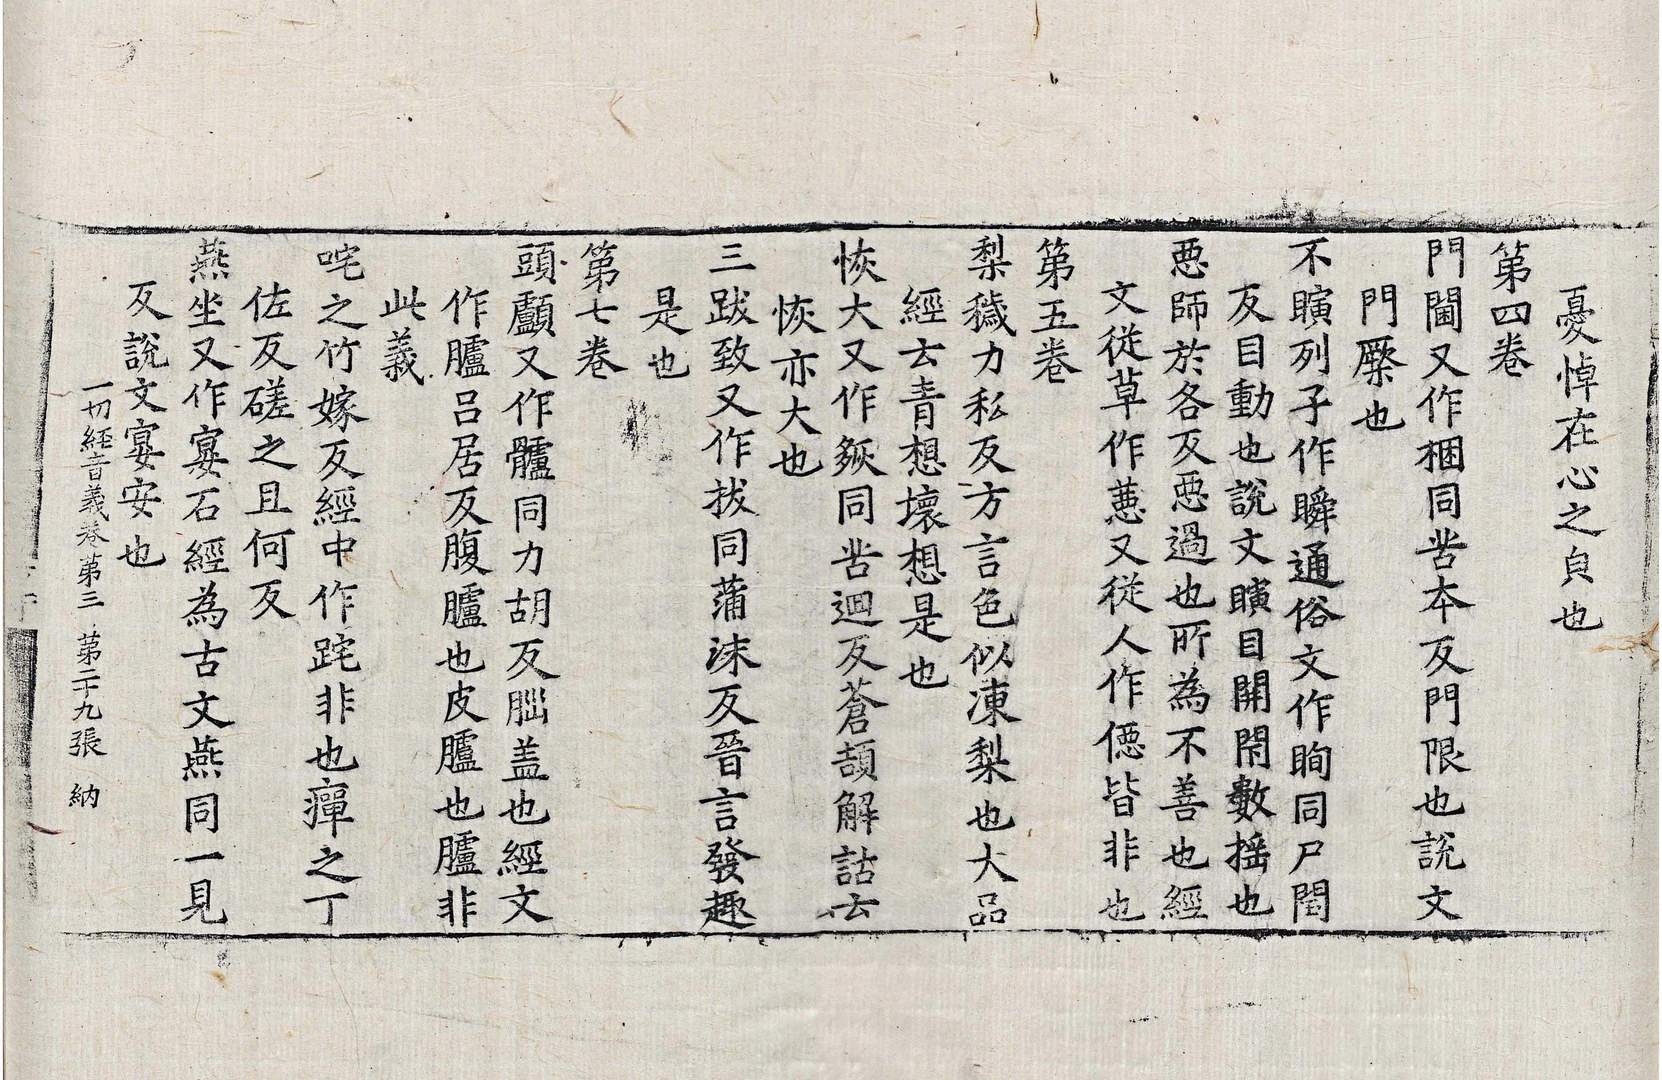 憂悼在心之皃也
第四卷
門閫又作梱同苦本反門限也說文
門橜也
不瞚列子作瞬通俗文作眴同尸閏
反目動也說文瞚目開閇數搖也
惡師於各反惡過也所為不善也經
文從草作蕜又從人作僫皆非也
第五卷
梨穢力私反方言色似凍梨也大品
經云青想壞想是也
恢大又作㷇同苦迴反蒼頡解詁云
恢亦大也
三跋致又作拔同蒲沬反晉言發趣
是也
第七卷
頭顱又作髗同力胡反腦盖也經文
作臚呂居反腹臚也皮臚也臚非
此義
咤之竹嫁反經中作跎非也癉之丁
佐反磋之且何反
燕坐又作宴石經為古文燕同一見
反說文宴安也
一切經音義卷第三 第二十九張 納